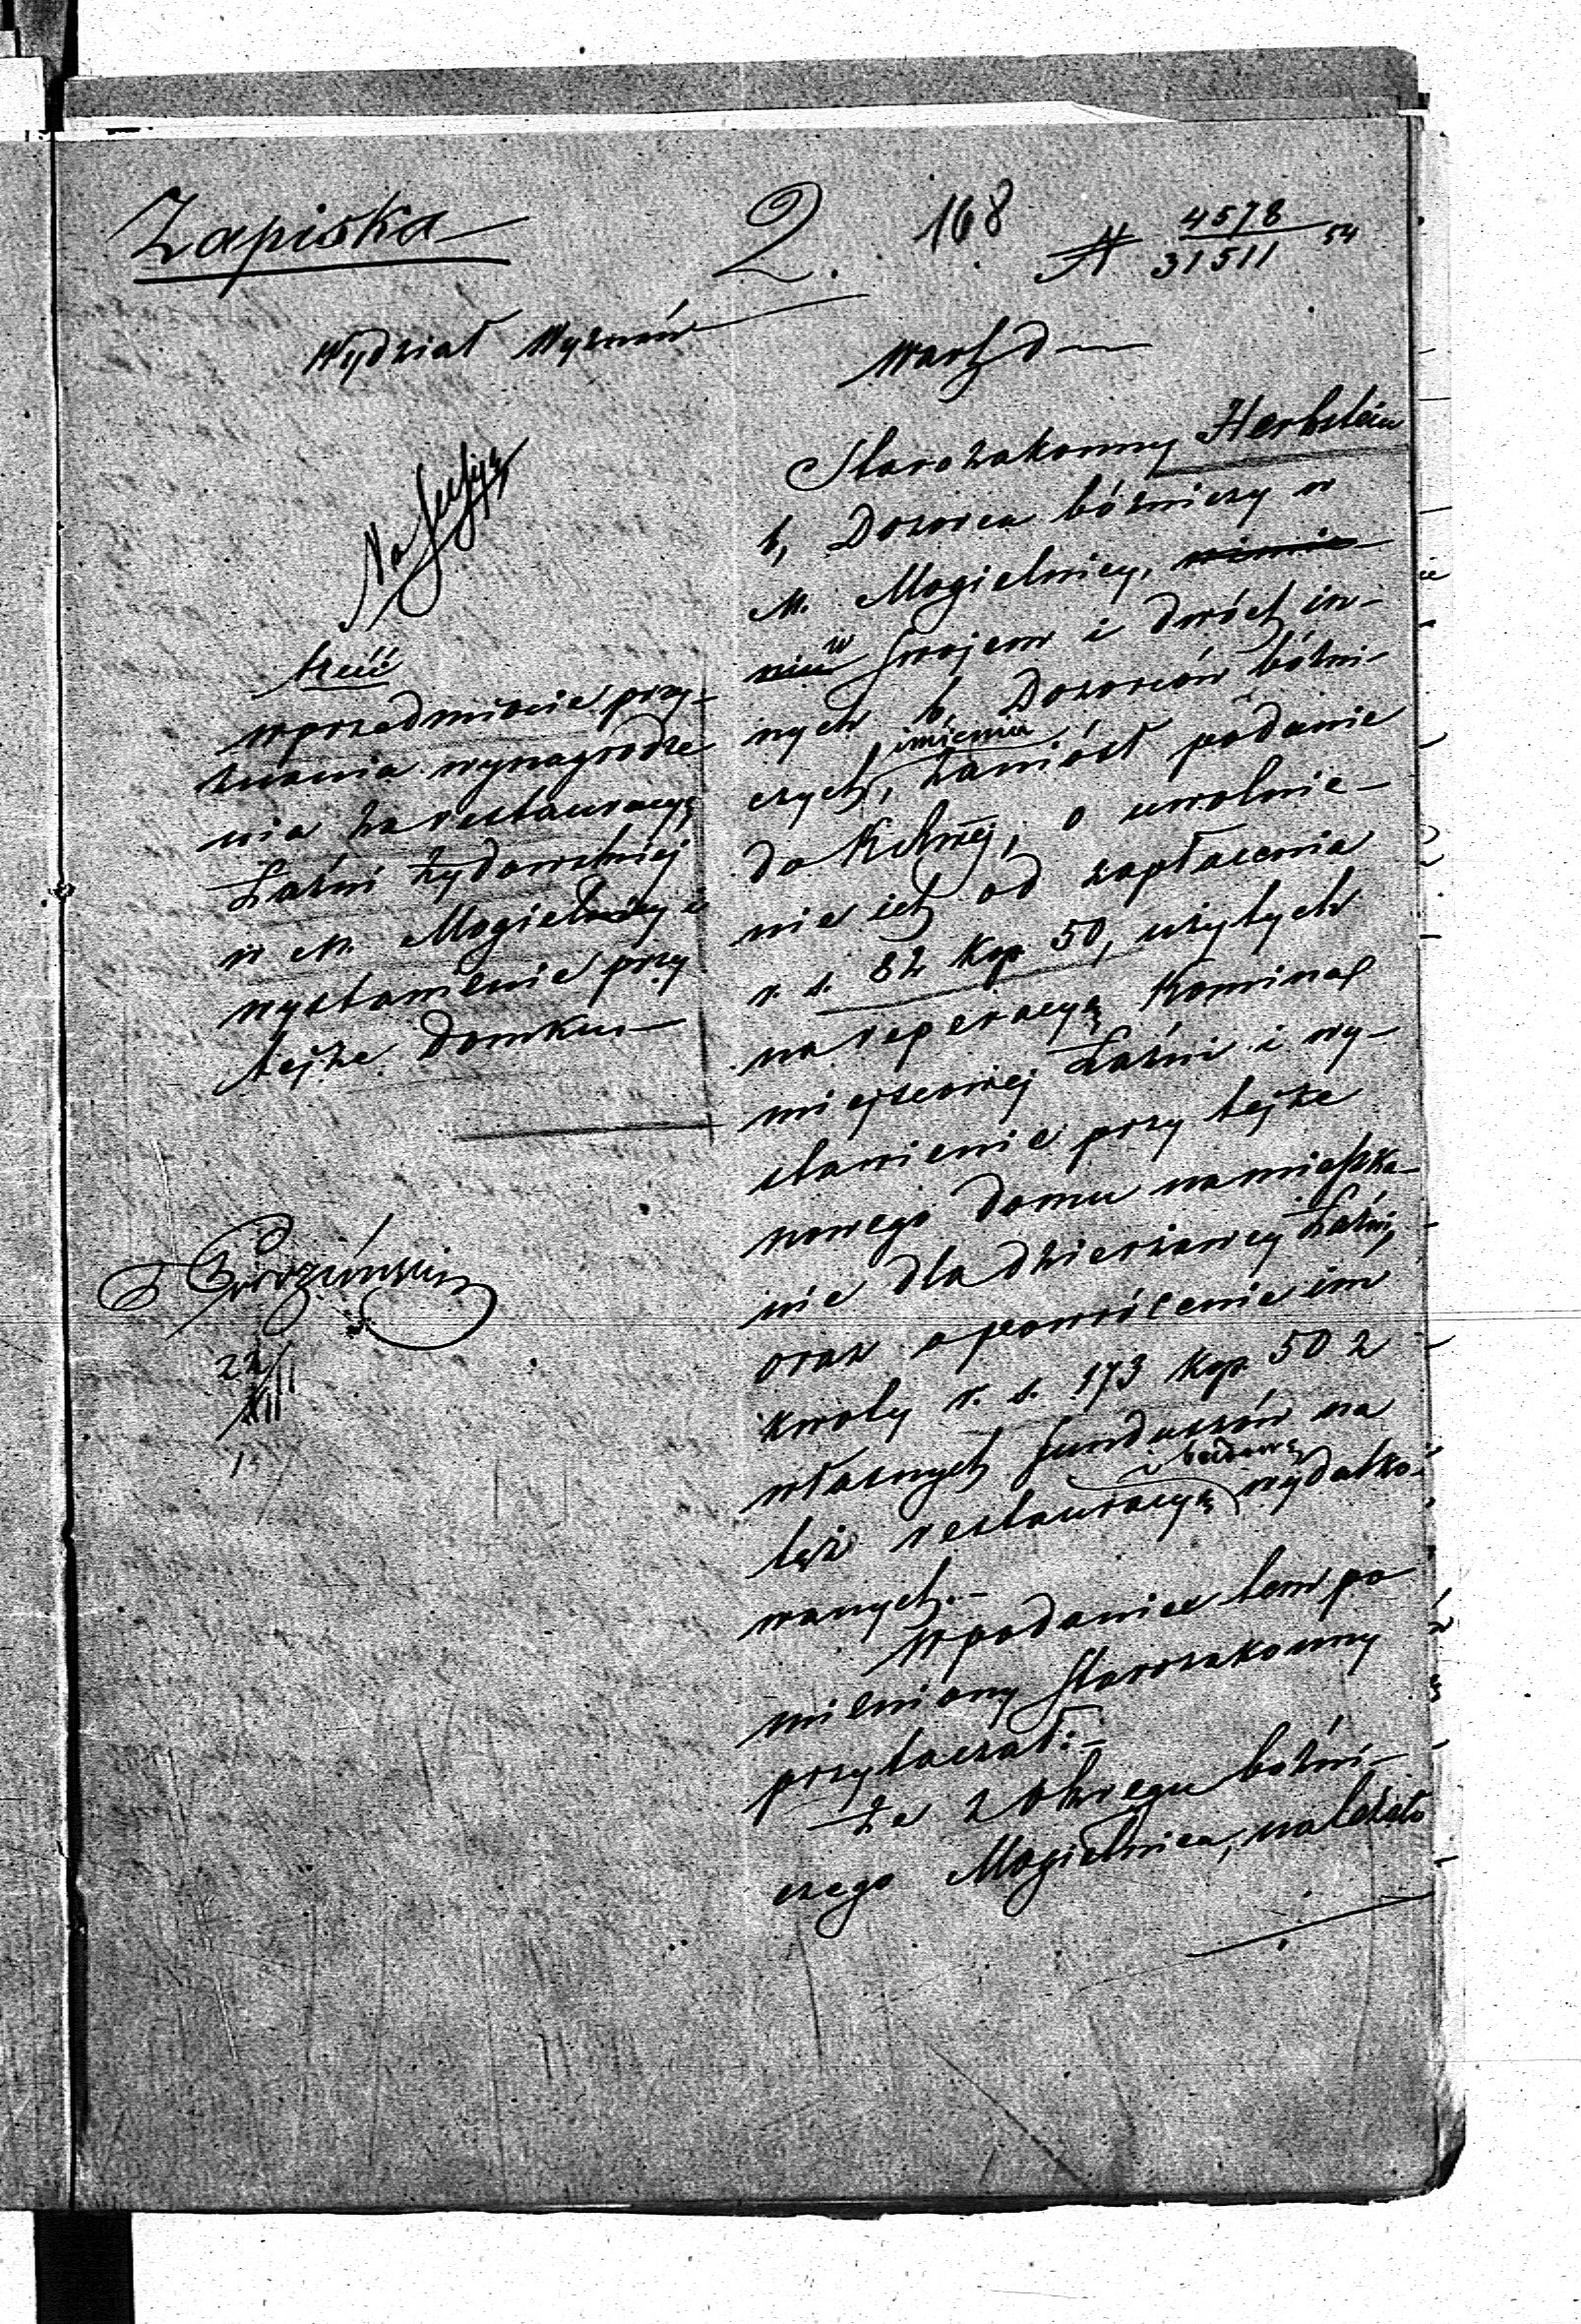 Zapiska
2.
168
N 4578/31511 54
Wydział Wyznań
Warsz d
Na Sessyą
treść
w przedmiocie przy-
znania wynagrodze
nia za restauracyą
Łaźni żydowskiej
w M. Mogielnicy i
wystawienie przy
tejże Domku
22/XII
Starozakonny Herbstein
b, Dozorca bóżniczy w
M. Mogielnicy, wimie
niu w swojem i dwóch in-
nych b, Dozorców bóżni-
czych, imieniu zaniósł podanie
do KRbwej, o uwolnie-
nie ich od zapłacenia
r. s. 82 kop 50, użytych
na reperacyą Komina
miejscowej Łaźni i wy-
stawienie przy tejże
nowego domu na mieszka-
nie dla dzierżawcy Łaźni,
oraz o powrócenie im
kwoty r. s. 173 kop. 50 z
własnych funduszów na
tęż restauracyą i budowę wydatko-
wanych.-
W podaniu tem po
mieniony Starozakonny
przytaczał:-
że z Okręgu bóżni-
czego Mogielnica, należało